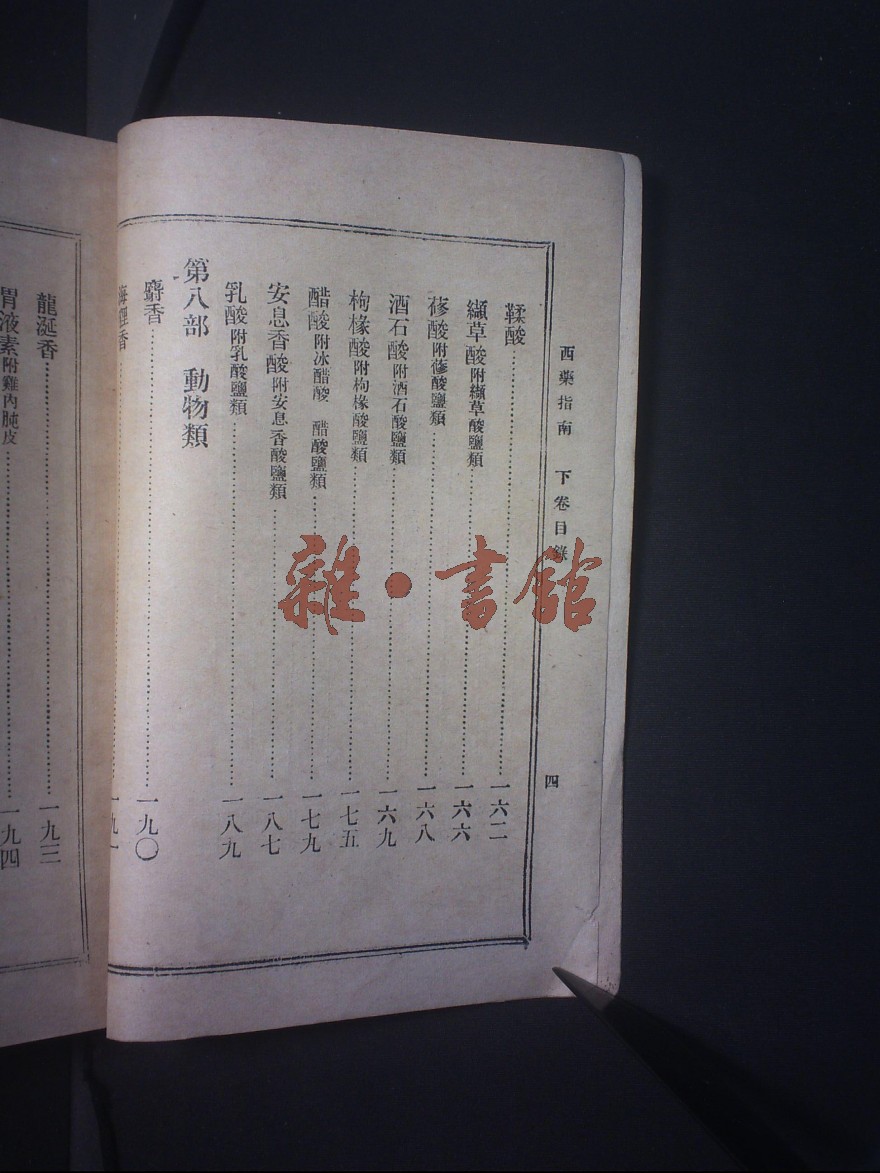 西藥指南 下卷目錄
四
鞣酸 一六二
纈草酸附纈草酸鹽類 一六六
蓚酸附蓚酸鹽類 一六八
酒石酸附酒石酸鹽類 一六九
枸櫞酸附枸櫞酸鹽類 一七五
醋酸附冰醋酸 醋酸鹽類 一七九
安息香酸附安息香酸鹽類 一八七
乳酸附乳酸鹽類 一八九
第八部 動物類
麝香 一九〇
海狸香 一九一
龍涎香 一九三
胃液素附雞內肫皮 一九四
雜·書館